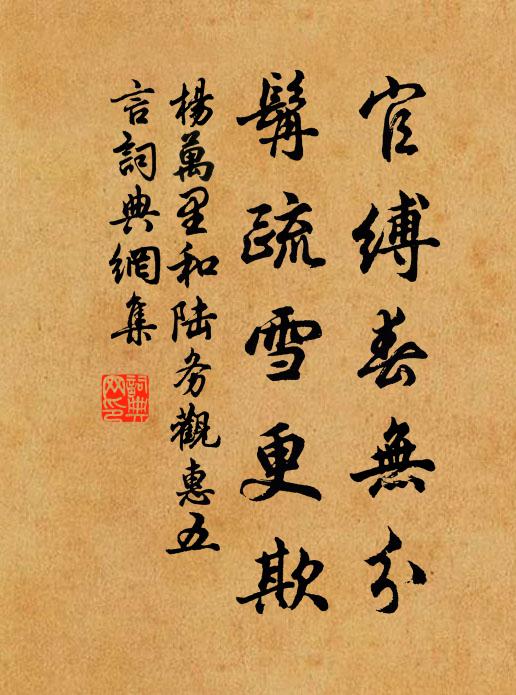 官縛春無分
鬅疏雪更欺
楊萬里和陸务觀惠五
言詞典網集
詞典
网印